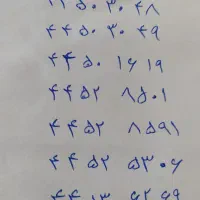 ۴۴۵۰ ۳۰ ۴۹
۴۴۵۰ ۱۶ ۱۹
۴۴۵۲ ۸۵۰۱
۴۴۵۲ ۸۵۹۱
۴۴۵۲ ۵۳۰۶